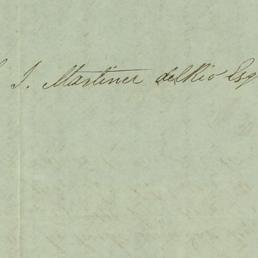 J. Martinez del Rio Esq